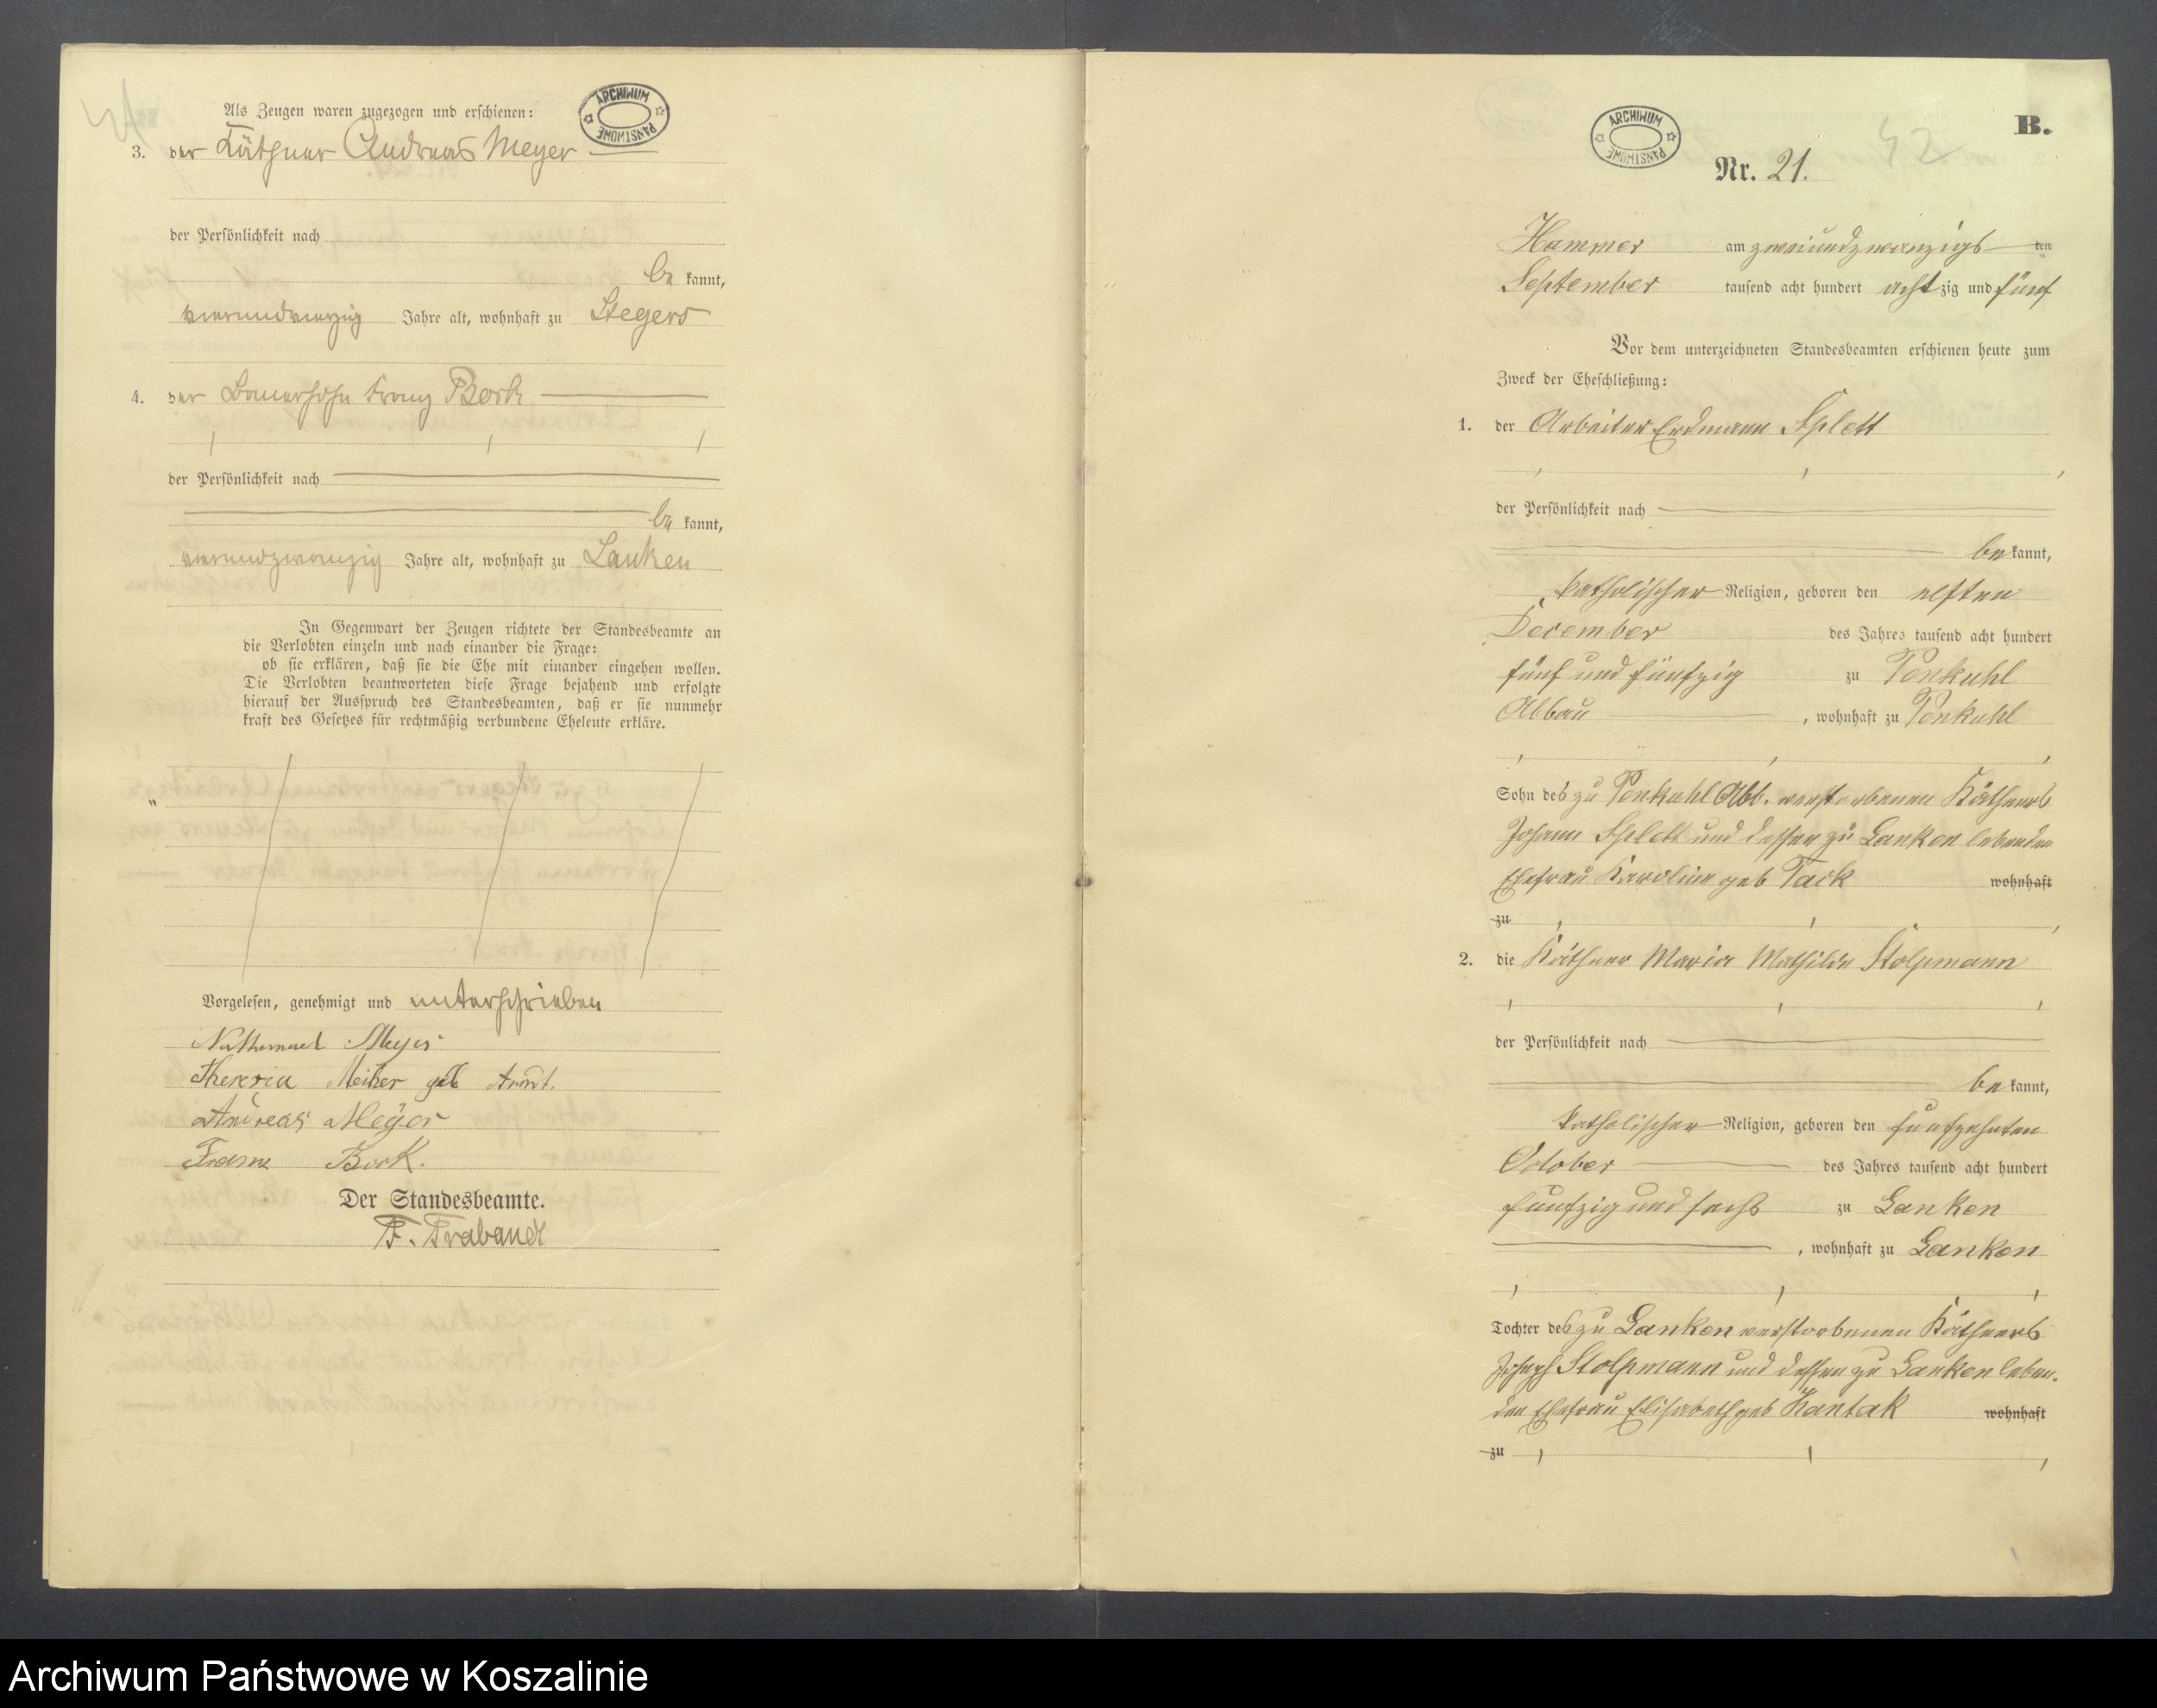 Als Zeugen waren zugezogen und erschienen:
ARCHIWUM PAŃSTWOWE
3. der Käthner Andreas Meyer
der Persönlichkeit nach
be kannt,
vierundvierzig Jahre alt, wohnhaft zu Stegers
4. der Bauersohn Franz Bork
der Persönlichkeit nach
be kannt,
vierundzwanzig Jahre alt, wohnhaft zu Lanken
In Gegenwart der Zeugen richtete der Standesbeamte an
die Verlobten einzeln und nach einander die Frage:
ob sie erklären, daß sie die Ehe mit einander eingehen wollen.
Die Verlobten beantworteten diese Frage bejahend und erfolgte
hierauf der Ausspruch des Standesbeamten, daß er sie nunmehr
kraft des Gesetzes für rechtmäßig verbundene Eheleute erkläre.
Vorgelesen, genehmigt und unterschrieben
Nathanael Meyer
Theresia Meiher geb Arndt.
Andreas Meyer
Franz Bork.
Der Standesbeamte.
F. Brabandt
B.
42
ARCHIWUM PAŃSTWOWE
Nr. 21.
Hammer am zweiundzwanzigsten
September tausend acht hundert achtzig und fünf
Vor dem unterzeichneten Standesbeamten erschienen heute zum
Zweck der Eheschließung:
1. der Arbeiter Erdmann Splett
der Persönlichkeit nach
be kannt,
katholischer Religion, geboren den elften
December des Jahres tausend acht hundert
fünf und fünfzig zu Penkuhl
Abbau, wohnhaft zu Penkuhl
Sohn des zu Penkuhl Abb. verstorbenen Käthners
Johann Splett und dessen zu Lanken lebenden
Ehefrau Karoline geb Tack wohnhaft
zu
2. die Käthner Maria Mathilde Stolpmann
der Persönlichkeit nach
be kannt,
katholischer Religion, geboren den funfzehnten
October des Jahres tausend acht hundert
funfzig und sechs zu Lanken
, wohnhaft zu Lanken
Tochter des zu Lanken verstorbenen Käthners
Joseph Stolpmann und dessen zu Lanken leben-
den Ehefrau Elisabeth geb Kantak wohnhaft
zu
Archiwum Państwowe w Koszalinie